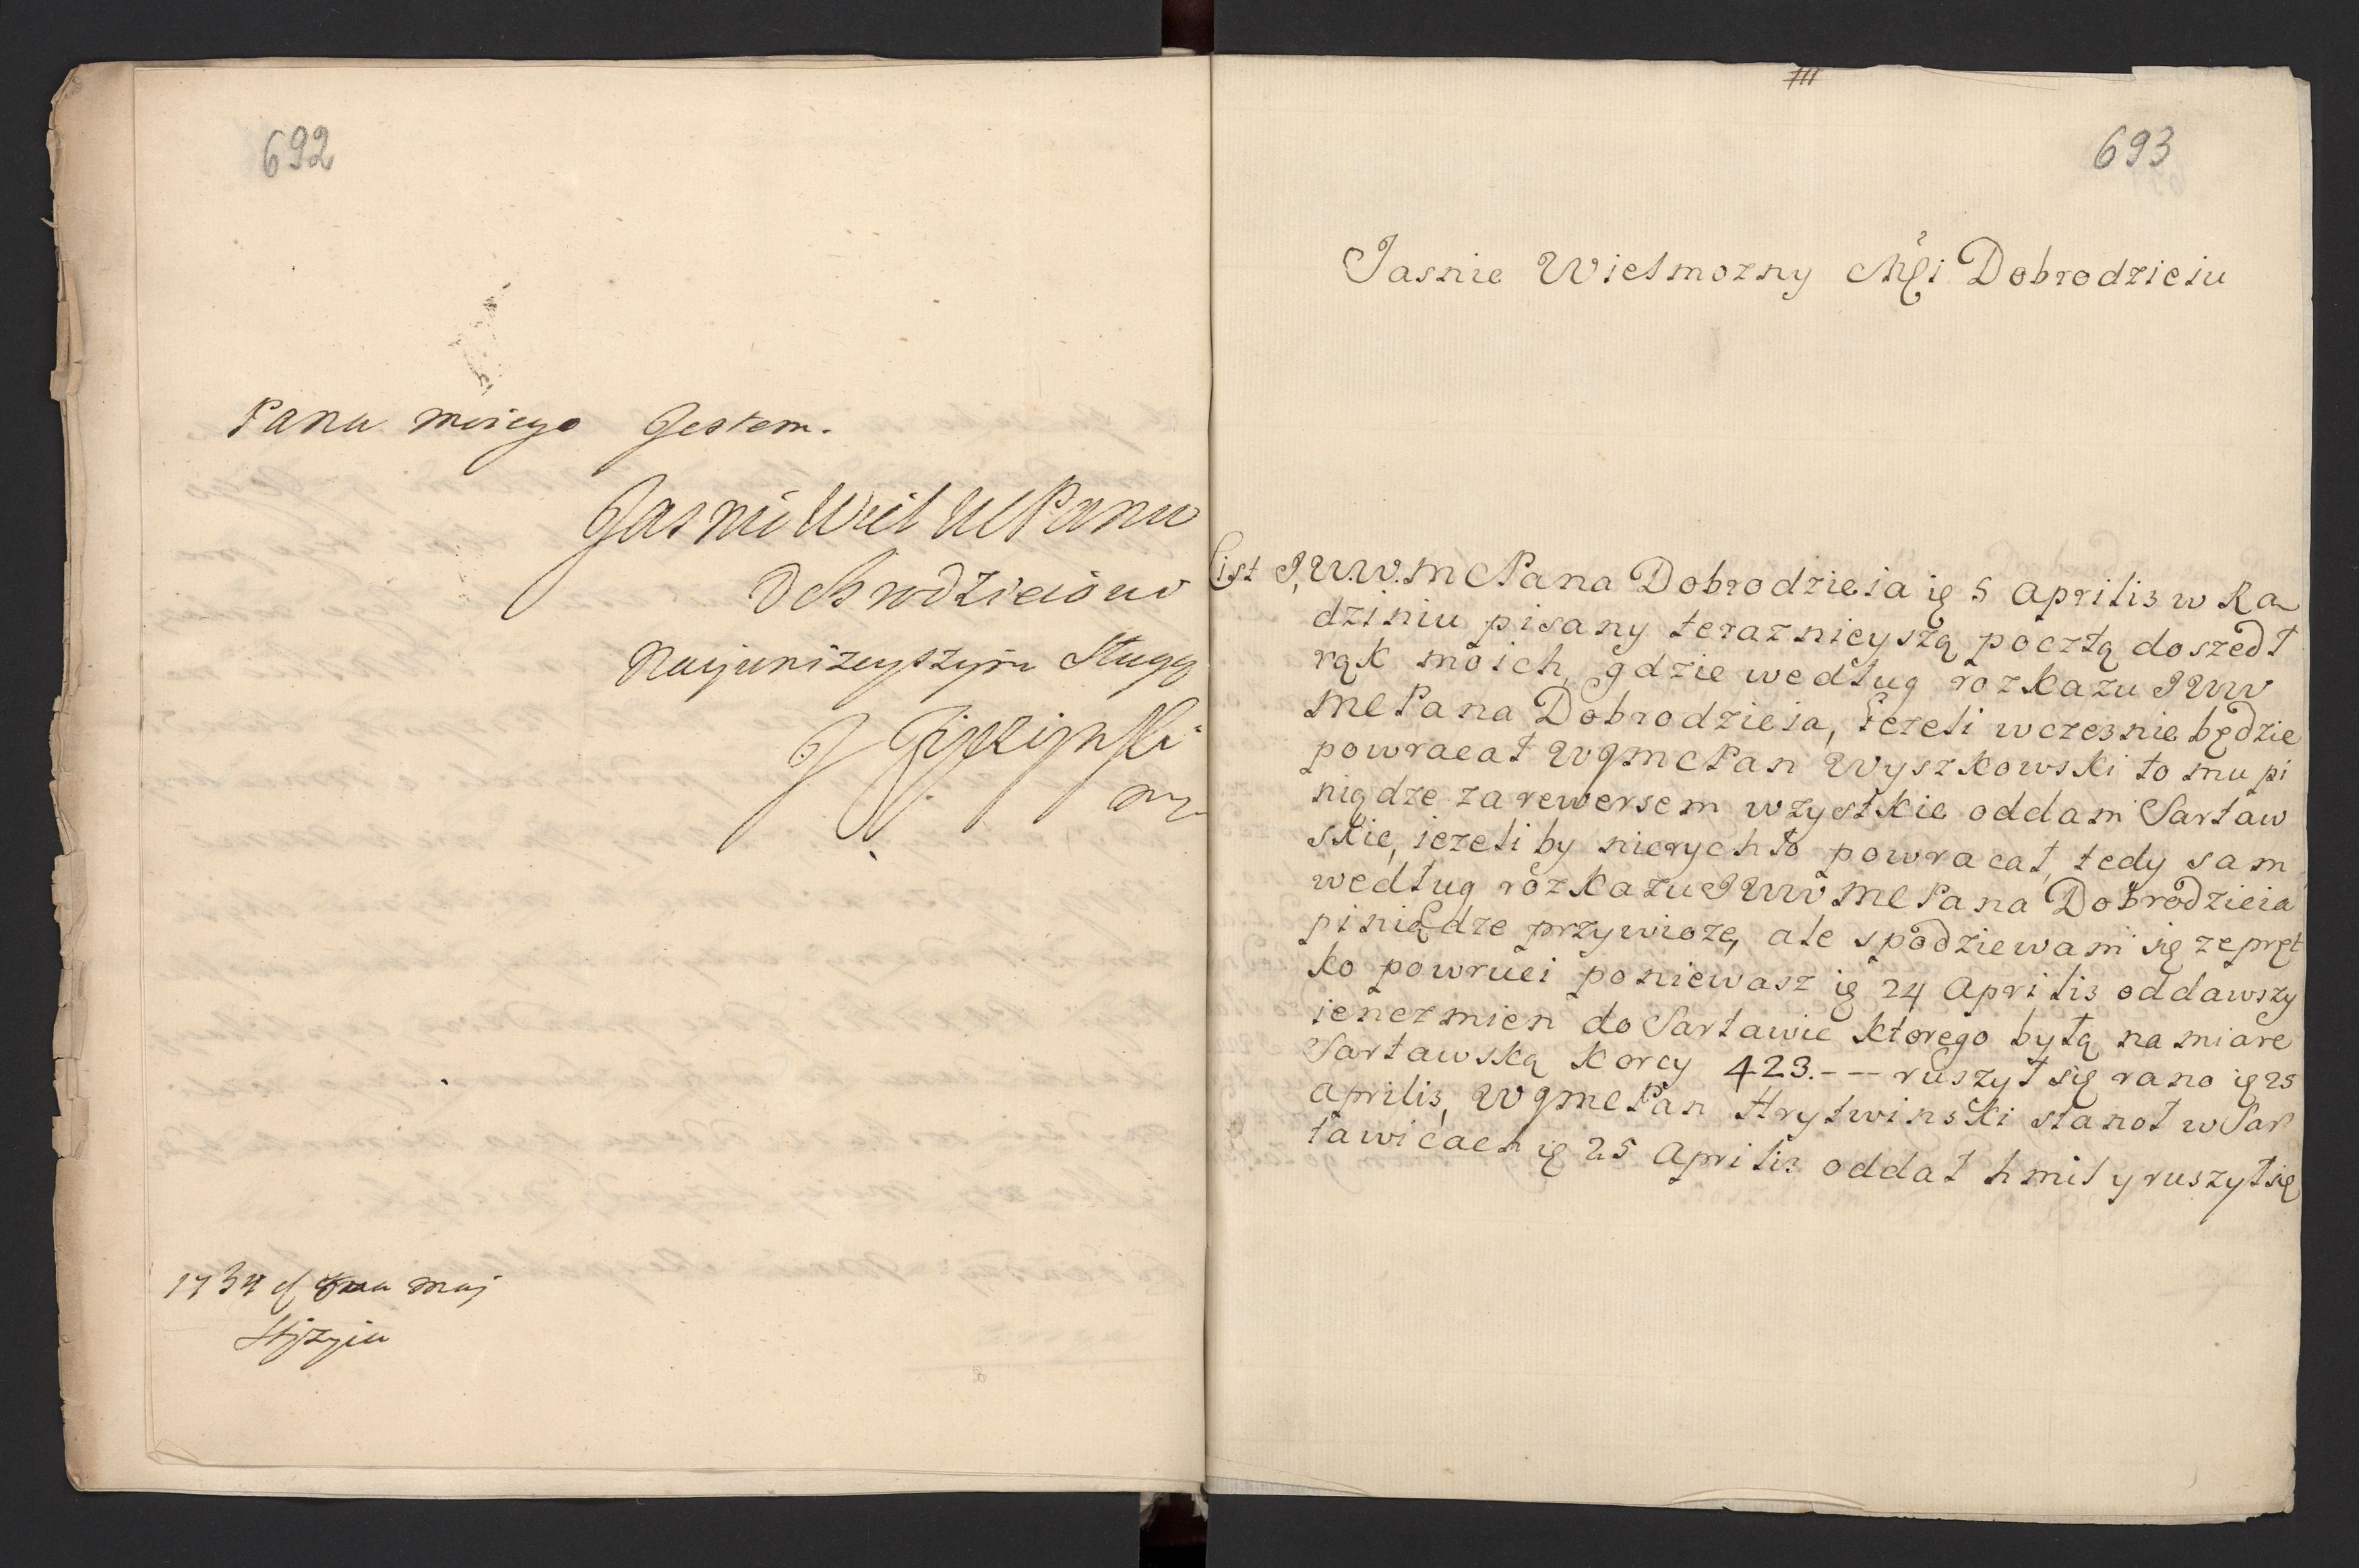 692
Pana moiego Jestem.
Jasnie Wiel MPana
Dobrodzieia
Nayunizenszym Sługą
1734 maj
693
Jasnie Wielmozny Mći Dobrodzieiu
List J.W.W.M CPana Dobrodzieia ię 5 Aprilis w Ra
dziniu pisany teraznieyszą pocztą doszedł
rąk moich, gdzie według rozkazu JWW
MCPana Dobrodzieia, iezeli wczesnie będzie
powracał WJMCPan Wyszkowski to mu pi
niądze za rewersem wzystkie oddam Sartaw
skie, iezeli by nierychło powracał, tedy sam
według rozkazu JWWMCPana Dobrodzieia
piniądze przywiozę, ale spodziewam się ze pręt
ko powruci poniewasz ię 24 Aprilis oddawszy
ięnczmien do Sartawic ktorego było na miarę
Sartawską korcy 423.--- ruszył się rano ię 25
Aprilis, WJMCPan Hrylwinski stanoł w Sar
tawicach ię 25 Aprilis oddał hmil y ruszył się